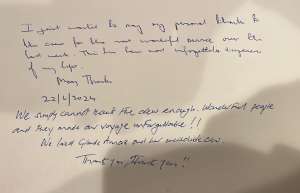 I just wanted to say my personal thanks to
the crew for the most wonderful service over the
last week. This has been most unforgettable experience
of my life.
Many Thanks
22/4/2024
We simply cannot thank the crew enough. Wonderful people
and they made our voyage unforgettable!!
We loved Grande and their incredible crew.
Thank you, thank you!!